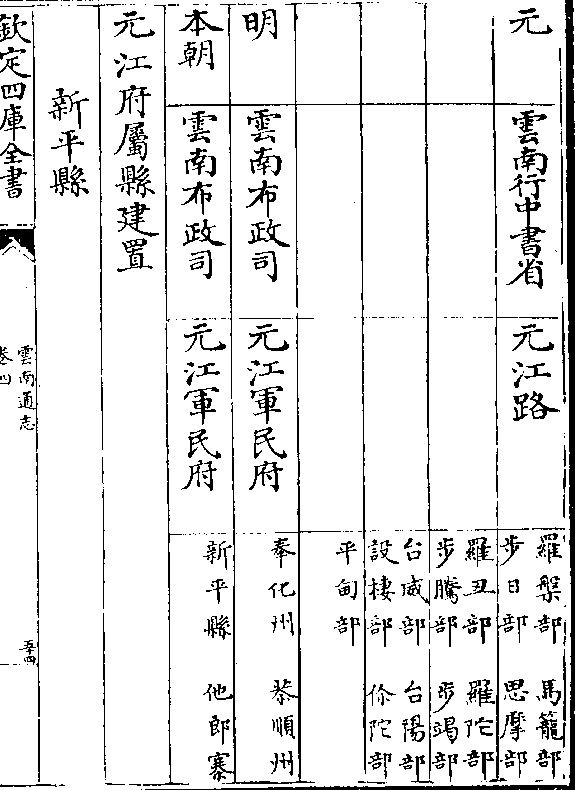 元　雲南行中書省　元江路　羅槃部　馬籠部
步日部　思摩部
羅丑部　羅陀部
步騰部　步竭部
台威部　台陽部
設棲部　你陀部
平甸部
明　雲南布政司　元江軍民府　奉化州　恭順州
本朝　雲南布政司　元江軍民府　新平縣　他郎寨
元江府屬縣建置
新平縣
欽定四庫全書
雲南通志
卷四
五十四